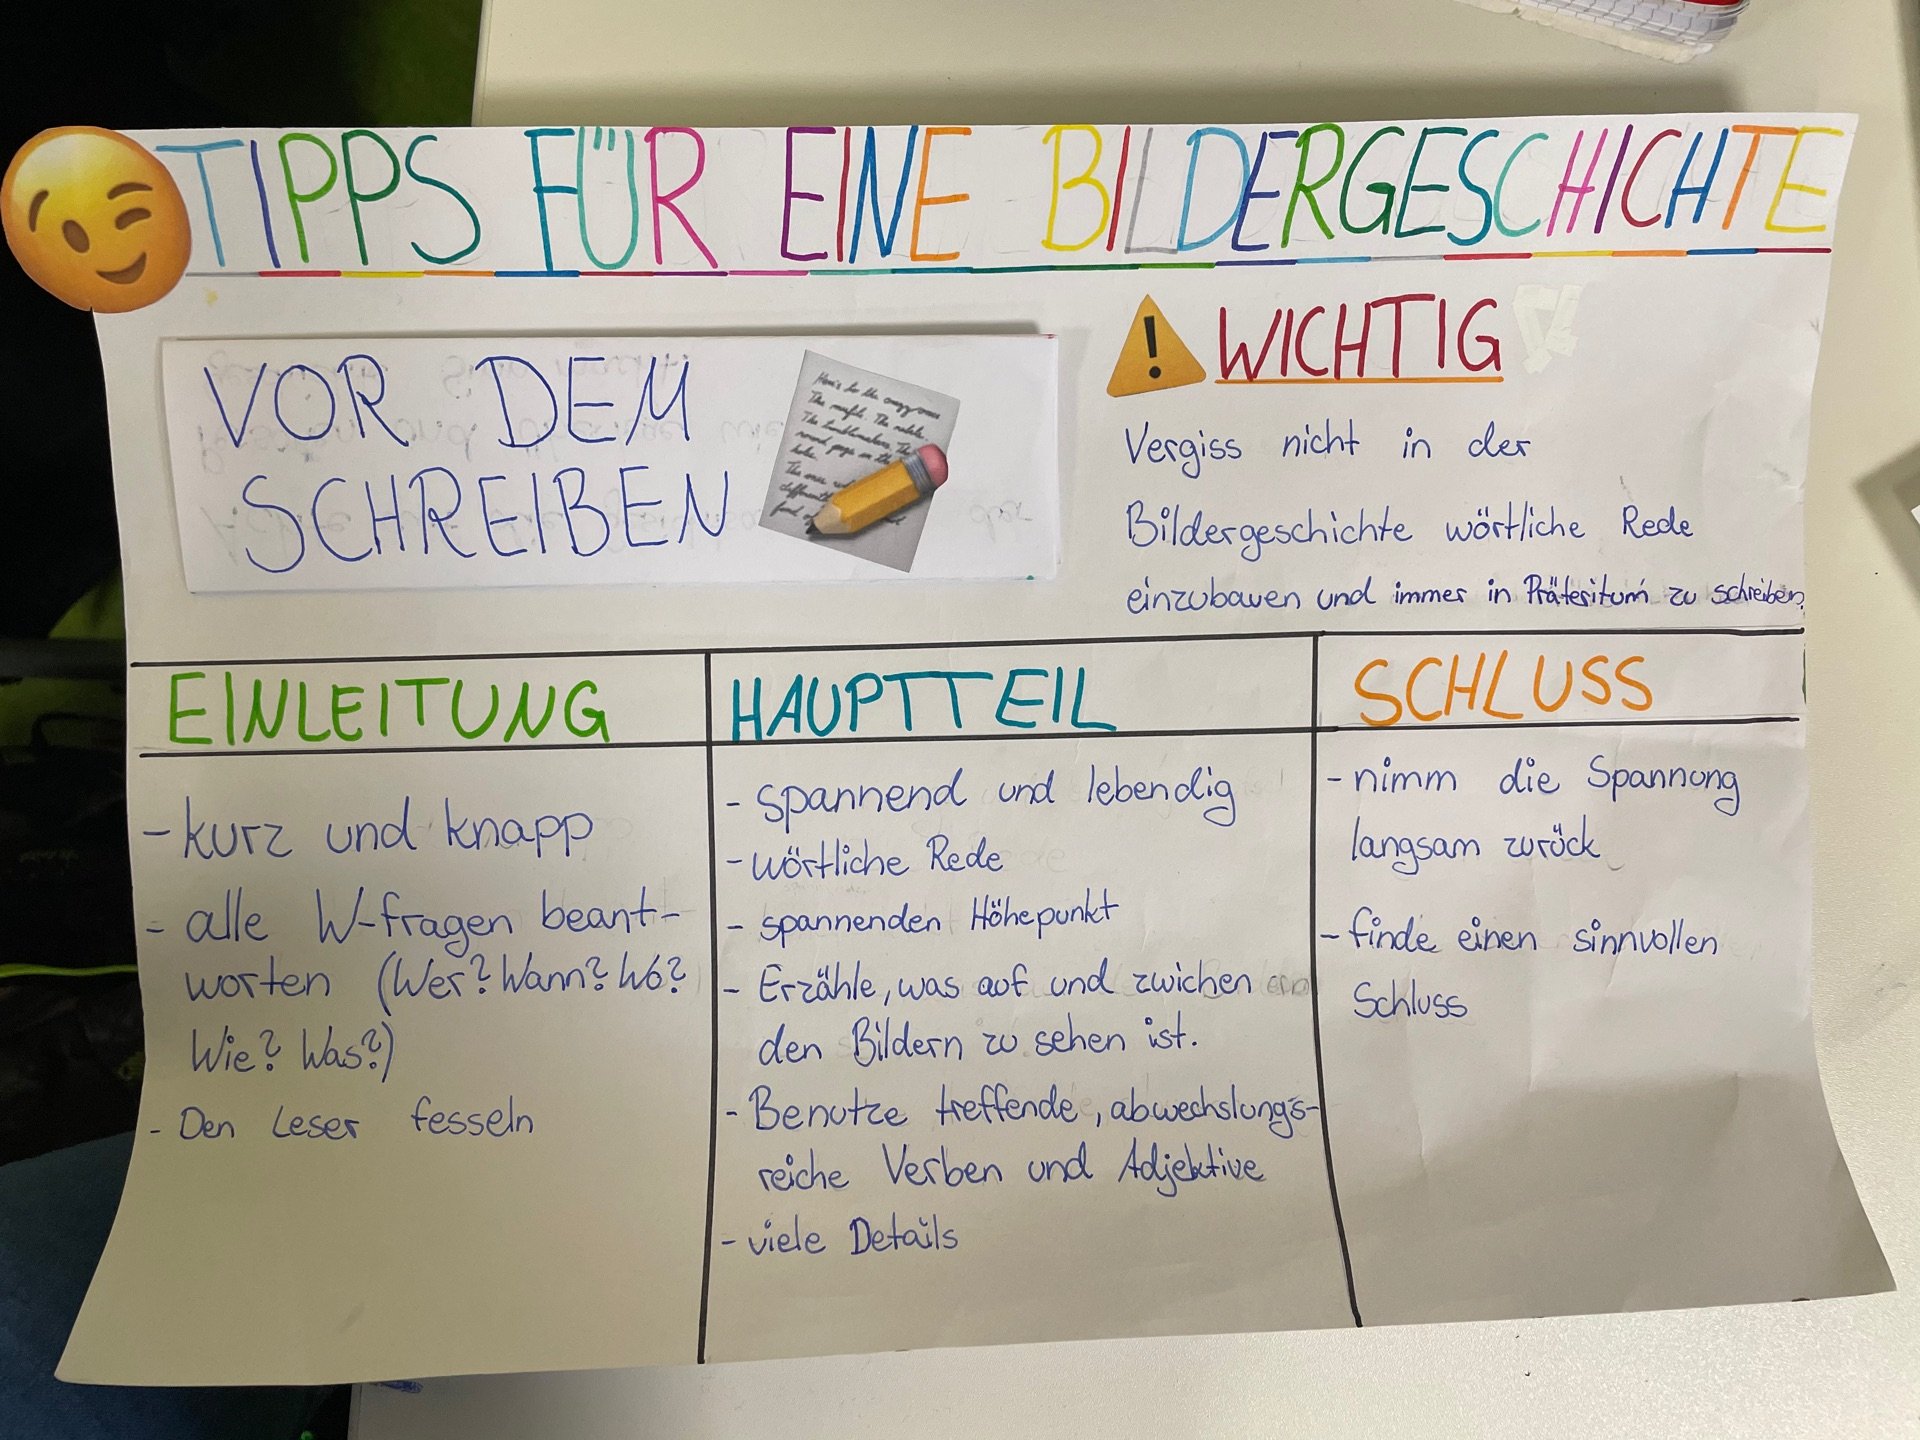 TIPPS FÜR EINE BILDERGESCHICHTE
VOR DEM
SCHREIBEN
WICHTIG
Vergiss nicht in der
Bildergeschichte wörtliche Rede
einzubauen und immer in Präteritum zu schreiben.
EINLEITUNG
- kurz und knapp
- alle W-fragen beant-
worten (Wer? Wann? Wo?
Wie? Was?)
- Den Leser fesseln
HAUPTTEIL
- spannend und lebendig
- wörtliche Rede
- spannenden Höhepunkt
- Erzähle, was auf und zwichen
den Bildern zu sehen ist.
- Benutze treffende, abwechslungs-
reiche Verben und Adjektive
- viele Details
SCHLUSS
- nimm die Spannung
langsam zurück
- finde einen sinnvollen
Schluss